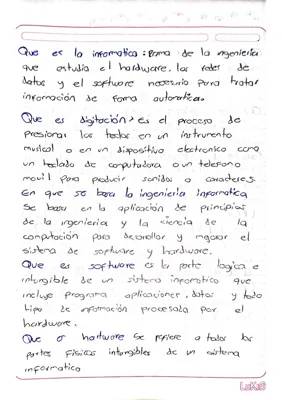 Que es la informatica: Rama de la ingenieria
que estudia el hardware, las redes de
datos y el software necesario para tratar
información de forma automatica.
Que es digitación: es el proceso de
presionar las teclas en un instrumento
musical o en un dispositivo electronico como
un teclado de computadora o un telefono
movil para producir sonidos o caracteres.
En que se basa la ingenieria informatica
Se basa en la aplicación de principios
de la ingenieria y la ciencia de la
computación para desarollar y mejorar el
sistema de software y hardware.
Que es software es la parte logica e
intangible de un sistema informatico que
incluye programa aplicaciones, datos y todo
tipo de información procesada por el
hardware.
Que es hartware Se refiere a todas las
partes fisicas intangibles de un sistema
informatico